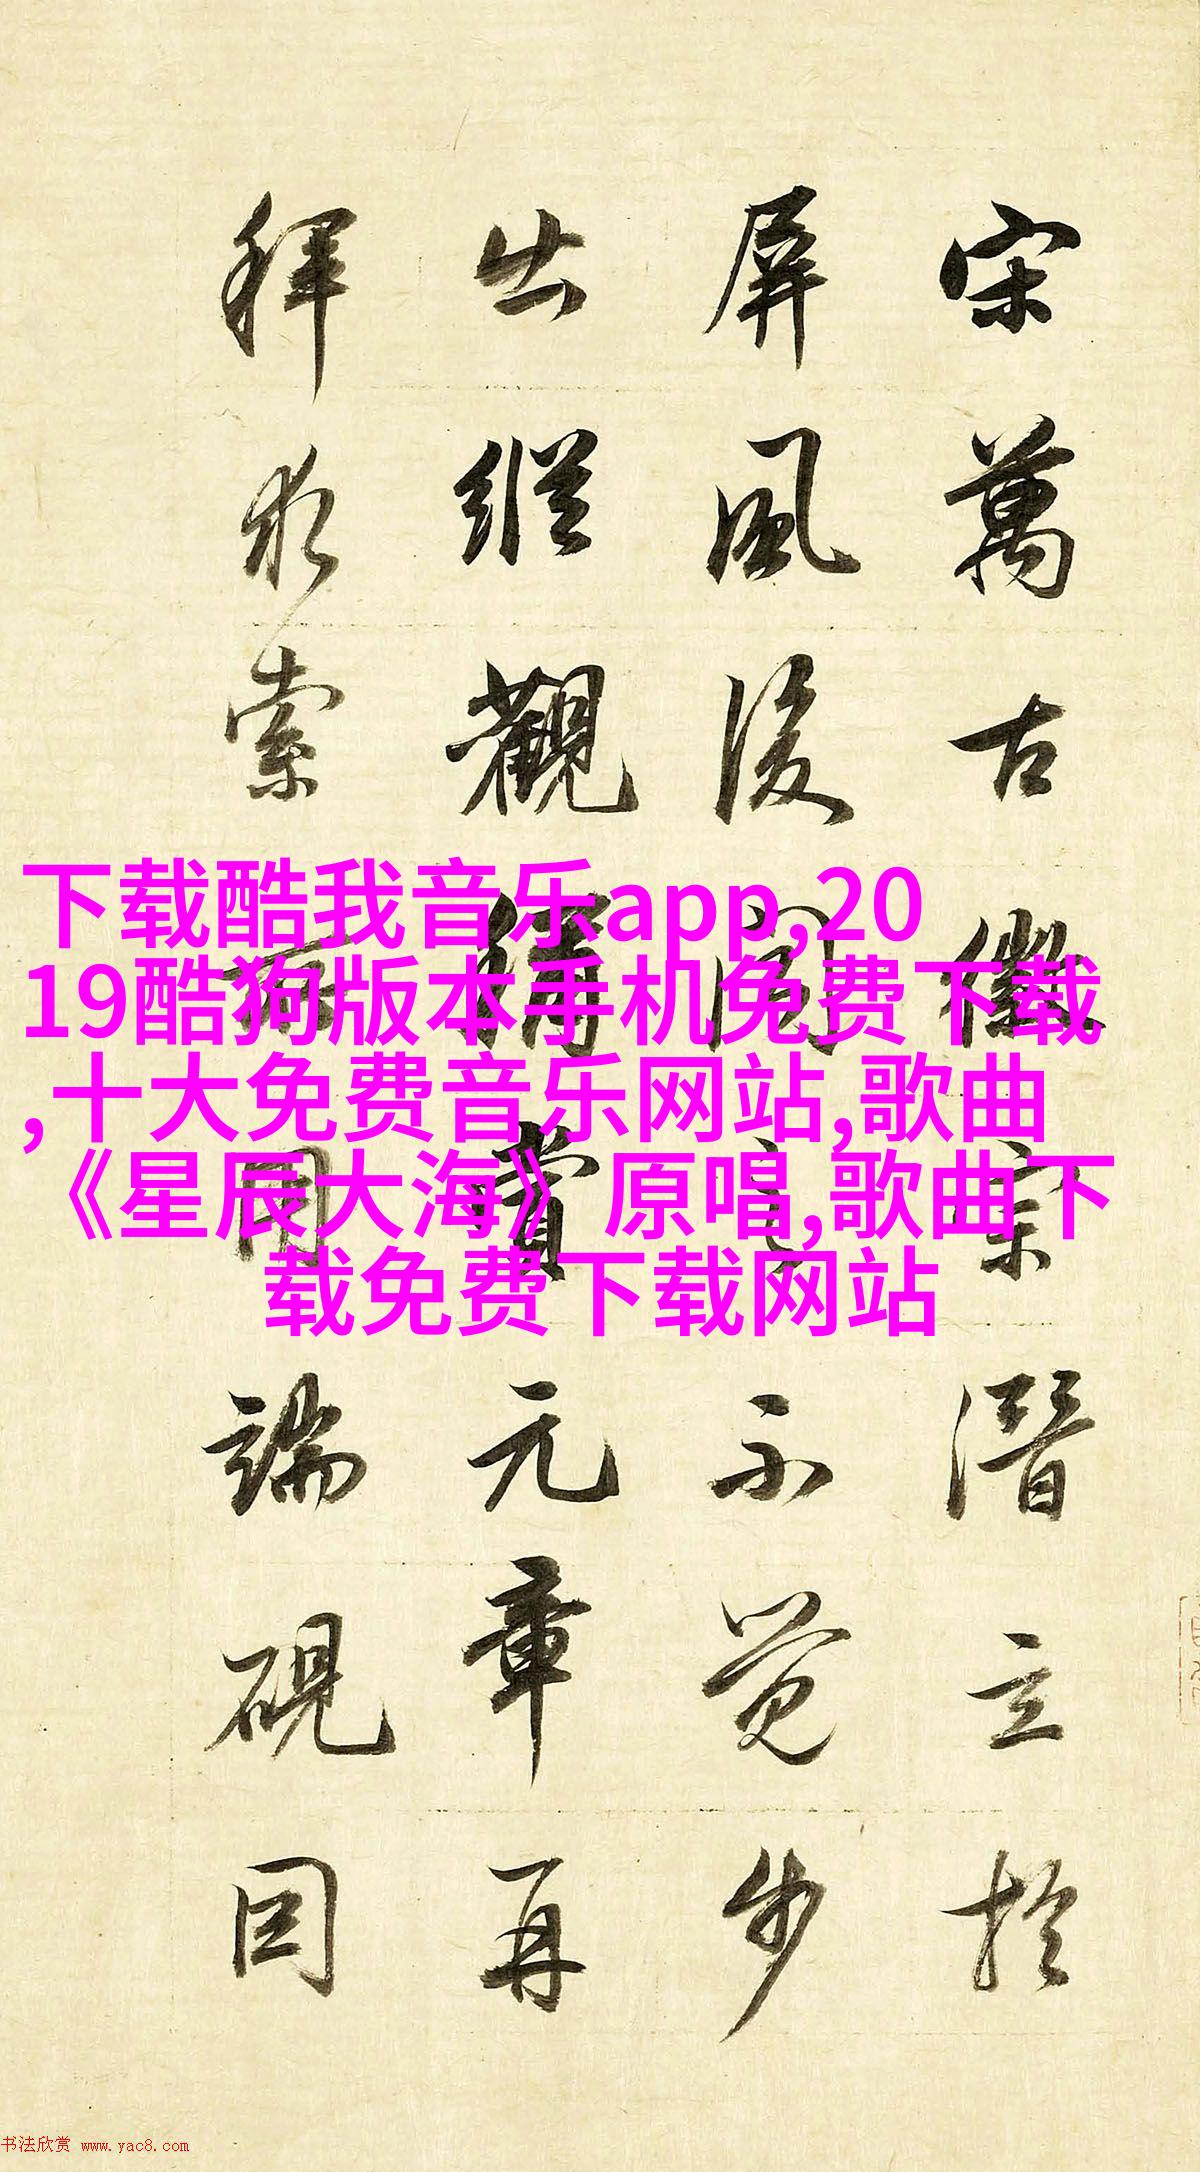 宋萬古徽宗潛立於
屏風後之不覺步
出縱觀稱賞元章再
拜求索所用端硯因
下载酷我音乐app,20
19酷狗版本手机免费下载
,十大免费音乐网站,歌曲
《星辰大海》原唱,歌曲下
载免费下载网站
书法欣赏 www.yac8.com